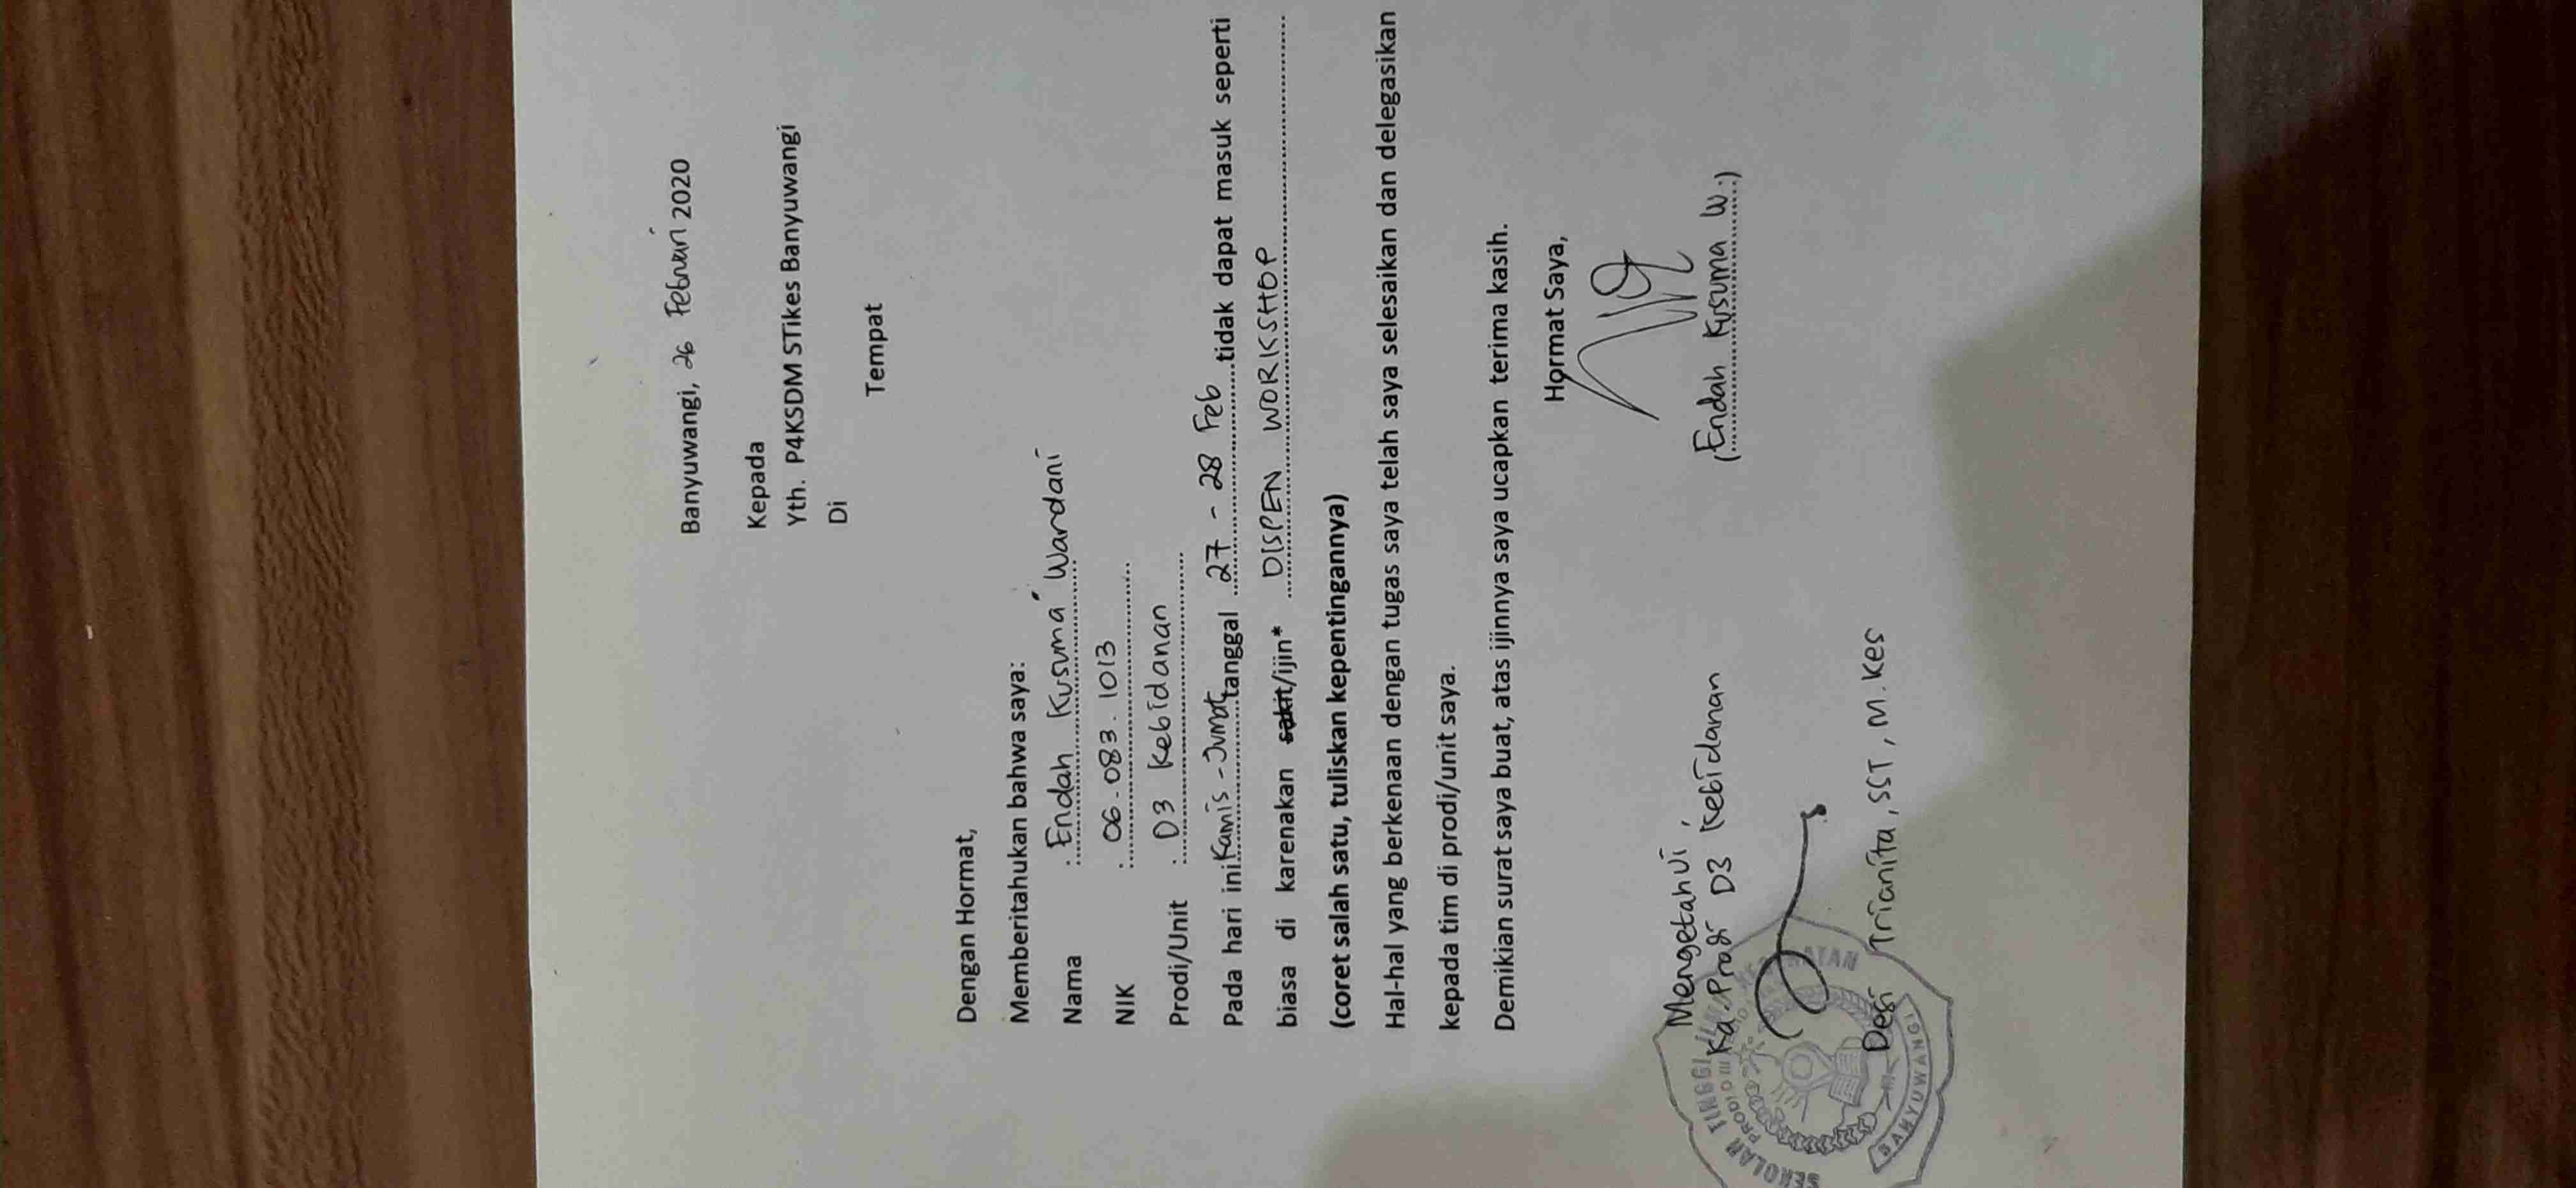 Banyuwangi, 26 Februari 2020
Kepada
Yth. P4KSDM STikes Banyuwangi
Di
Tempat
Dengan Hormat,
Memberitahukan bahwa saya:
Nama : Endah Kusuma Wardani
NIK : 06.083.1013
Prodi/Unit : D3 Kebidanan
Pada hari ini Kamis - Jumat tanggal 27 - 28 Feb tidak dapat masuk seperti
biasa di karenakan sakit/ijin* DISPEN WORKSHOP
(coret salah satu, tuliskan kepentingannya)
Hal-hal yang berkenaan dengan tugas saya telah saya selesaikan dan delegasikan
kepada tim di prodi/unit saya.
Demikian surat saya buat, atas ijinnya saya ucapkan terima kasih.
Hormat Saya,
(Endah Kusuma W.)
Mengetahui,
Ka. Prodi D3 Kebidanan
Desi Trianita, SST, M.Kes
SEKOLAH TINGGI
PRODI D III
BANYUWANGI